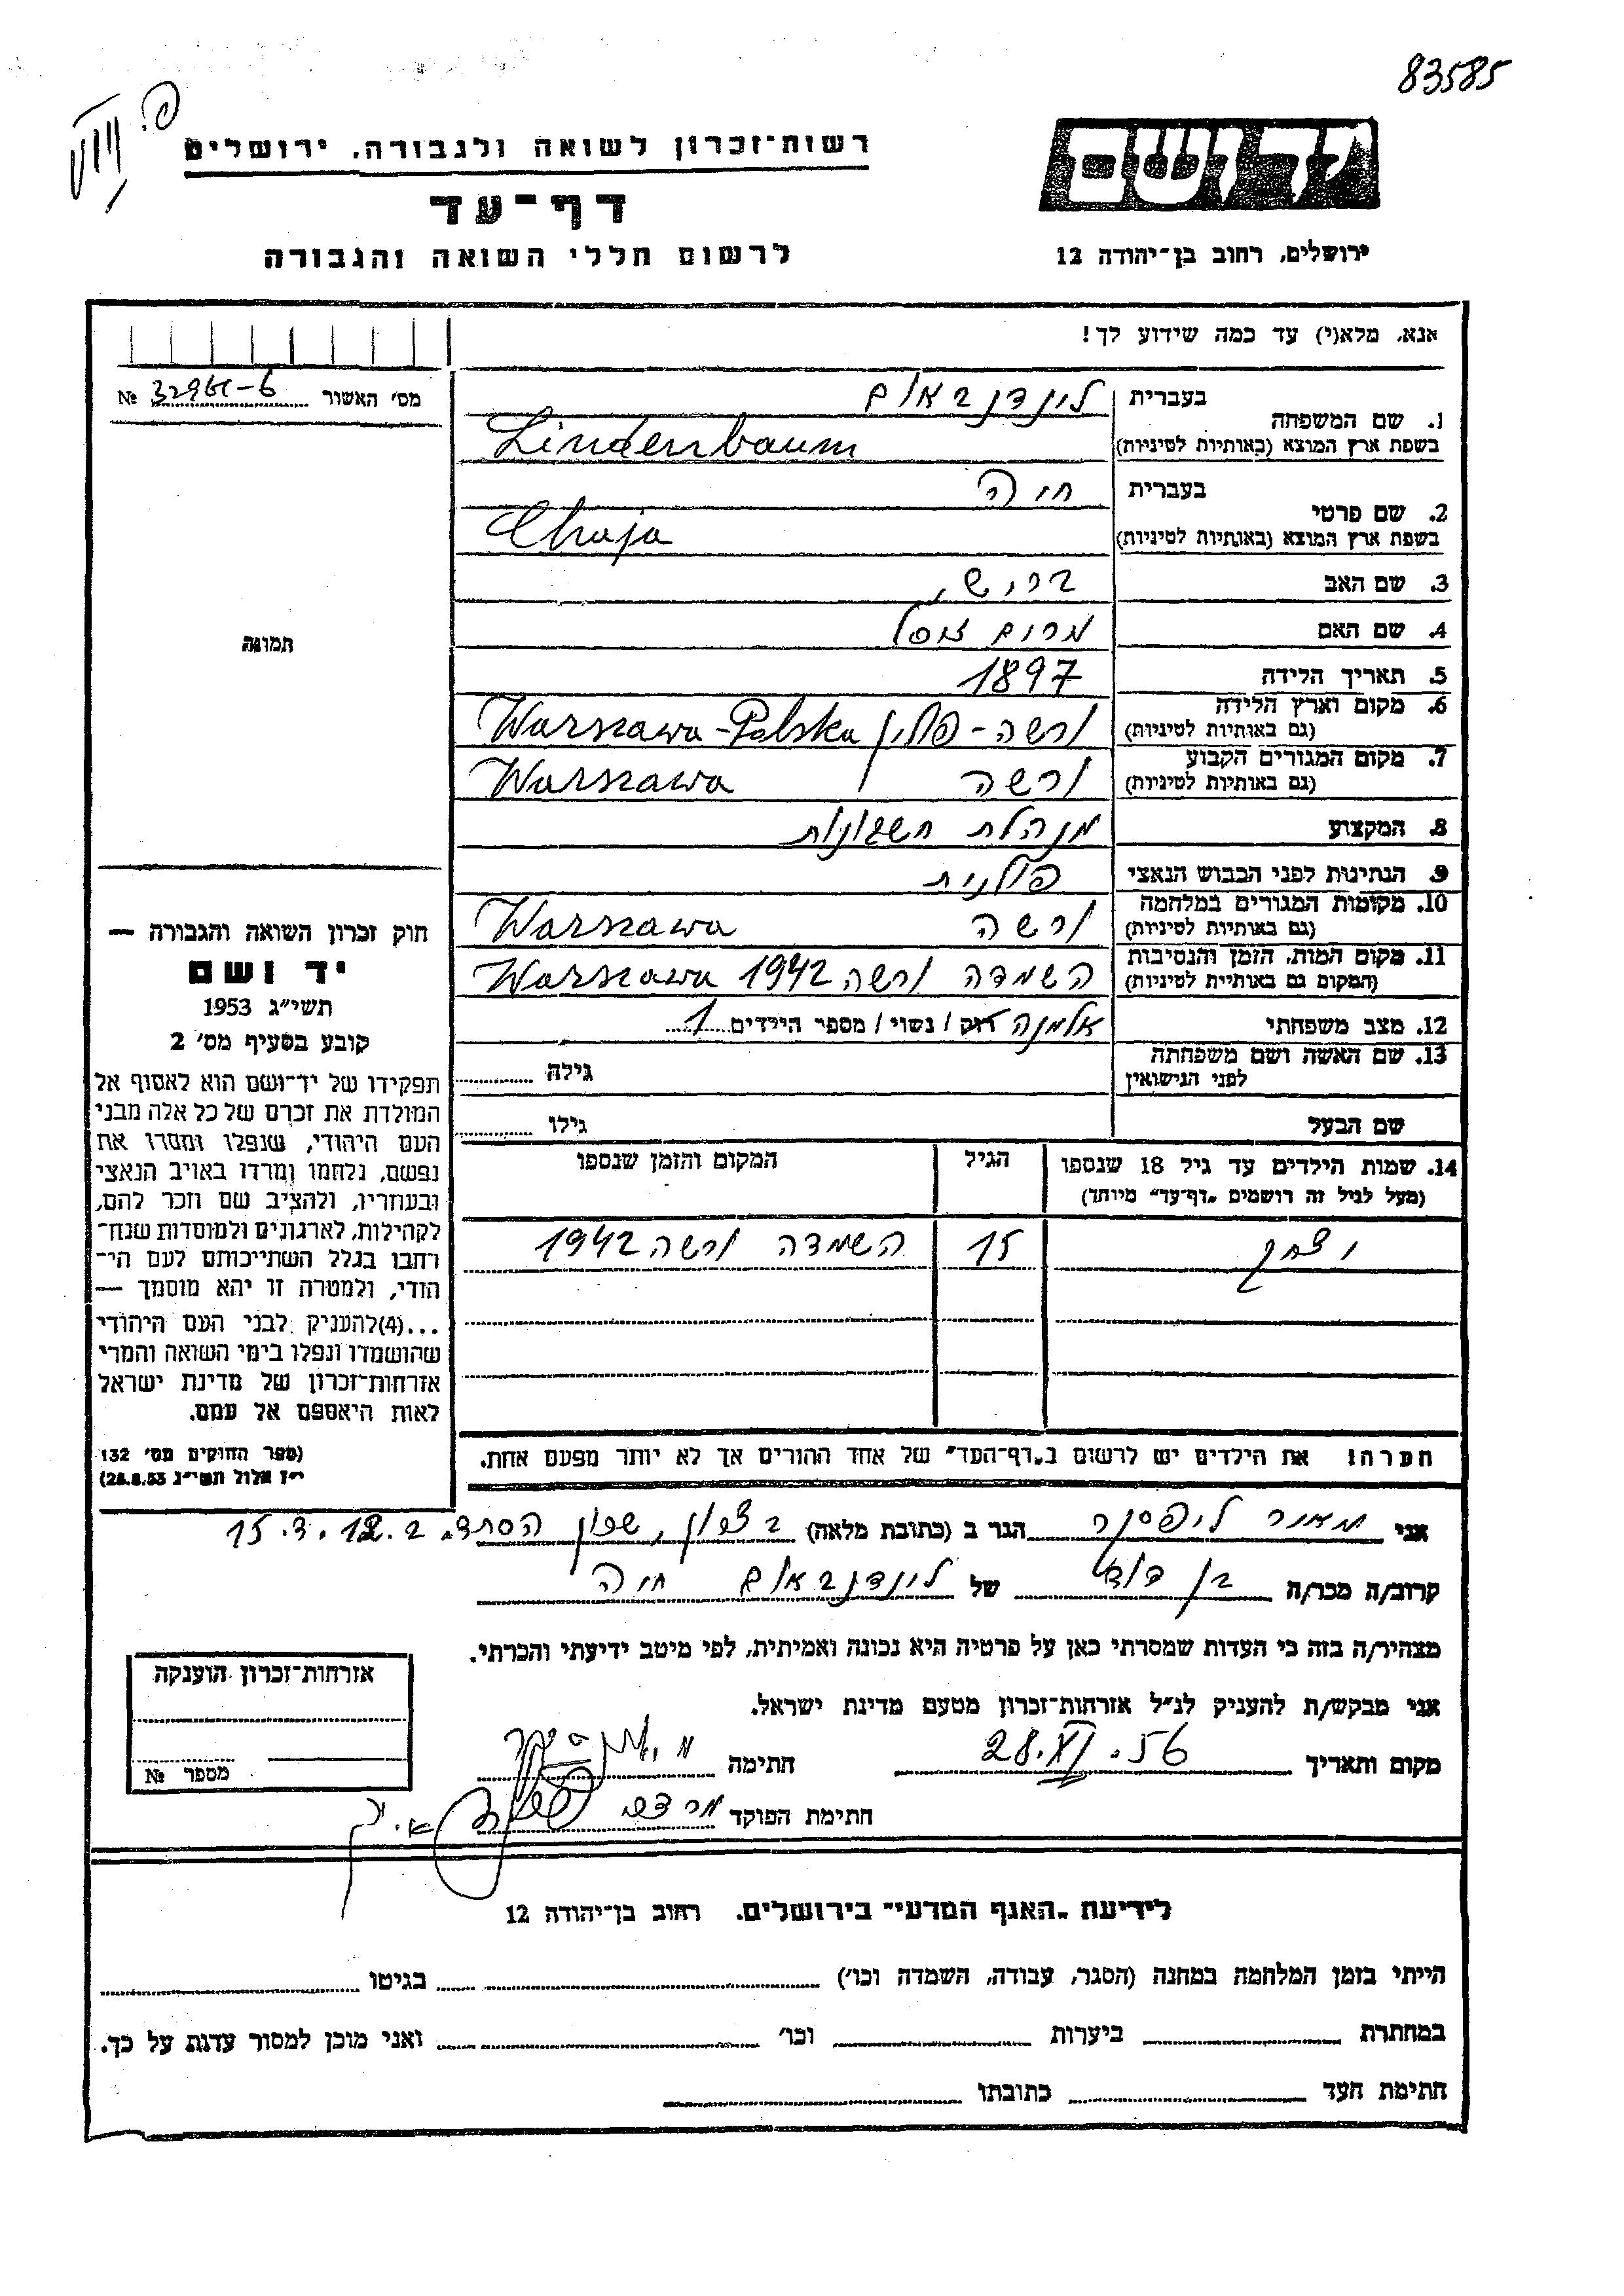 83585
פ.
רשות־זכרון לשואה ולגבורה, ירושלים
דף־עד
לרשום חללי השואה והגבורה
יד ושם
ירושלים, רחוב בן־יהודה 12
אנא, מלא(י) עד כמה שידוע לך!
מס' האשור №
1. שם המשפחה
בעברית לינדנבאום
בשפת ארץ המוצא (באותיות לטיניות) Lindenbaum
2. שם פרטי
בעברית חיה
בשפת ארץ המוצא (באותיות לטיניות) Chaja
3. שם האב
4. שם האם מרים
5. תאריך הלידה 1897
6. מקום וארץ הלידה ורשה - פולין Warszawa-Polska
(גם באותיות לטיניות)
7. מקום המגורים הקבוע ורשה Warszawa
(גם באותיות לטיניות)
8. המקצוע מנהלת חשבונות
9. הנתינות לפני הכבוש הנאצי פולנית
10. מקומות המגורים במלחמה ורשה Warszawa
(גם באותיות לטיניות)
11. מקום המות, הזמן והנסיבות השמדה ורשה 1942 Warszawa
(המקום גם באותיות לטיניות)
12. מצב משפחתי אלמנה רוק / נשוי / מספר הילדים 1
13. שם האשה ושם משפחתה גילה
לפני הנישואין
שם הבעל גילו
14. שמות הילדים עד גיל 18 שנספו הגיל המקום והזמן שנספו
(מעל לגיל זה רושמים „דף־עד" מיוחד)
יצחק 15 השמדה ורשה 1942
הערה! את הילדים יש לרשום ב„דף־העד" של אחד ההורים אך לא יותר מפעם אחת.
תמונה
חוק זכרון השואה והגבורה —
יד ושם
תשי״ג 1953
קובע בסעיף מס' 2
תפקידו של יד־ושם הוא לאסוף אל
המולדת את זכרם של כל אלה מבני
העם היהודי, שנפלו ומסרו את
נפשם, נלחמו ומרדו באויב הנאצי
ובעוזריו, ולהציב שם וזכר להם,
לקהילות, לארגונים ולמוסדות שנח־
רבו בגלל השתייכותם לעם הי־
הודי, ולמטרה זו יהא מוסמך —
...(4)להעניק לבני העם היהודי
שהושמדו ונפלו בימי השואה והמרי
אזרחות־זכרון של מדינת ישראל
לאות היאספם אל עמם.
(ספר החוקים מס' 132
י״ז אלול תשי״ג 28.8.53)
אני מאיר ליפסקר הגר ב (כתובת מלאה) בצרון, שכון הסתד. ב. 12. ד. 15
קרוב/ה מכר/ה בן דוד של לינדנבאום חיה
מצהיר/ה בזה כי העדות שמסרתי כאן על פרטיה היא נכונה ואמיתית, לפי מיטב ידיעתי והכרתי.
אני מבקש/ת להעניק לנ״ל אזרחות־זכרון מטעם מדינת ישראל.
מקום ותאריך 28.XI.56 חתימה
חתימת הפוקד
אזרחות־זכרון הוענקה
מספר №
לידיעת „האגף המדעי" בירושלים, רחוב בן־יהודה 12
הייתי בזמן המלחמה במחנה (הסגר, עבודה, השמדה וכו') בגיטו
במחתרת ביערות וכו' ואני מוכן למסור עדות על כך.
חתימת העד כתובתו